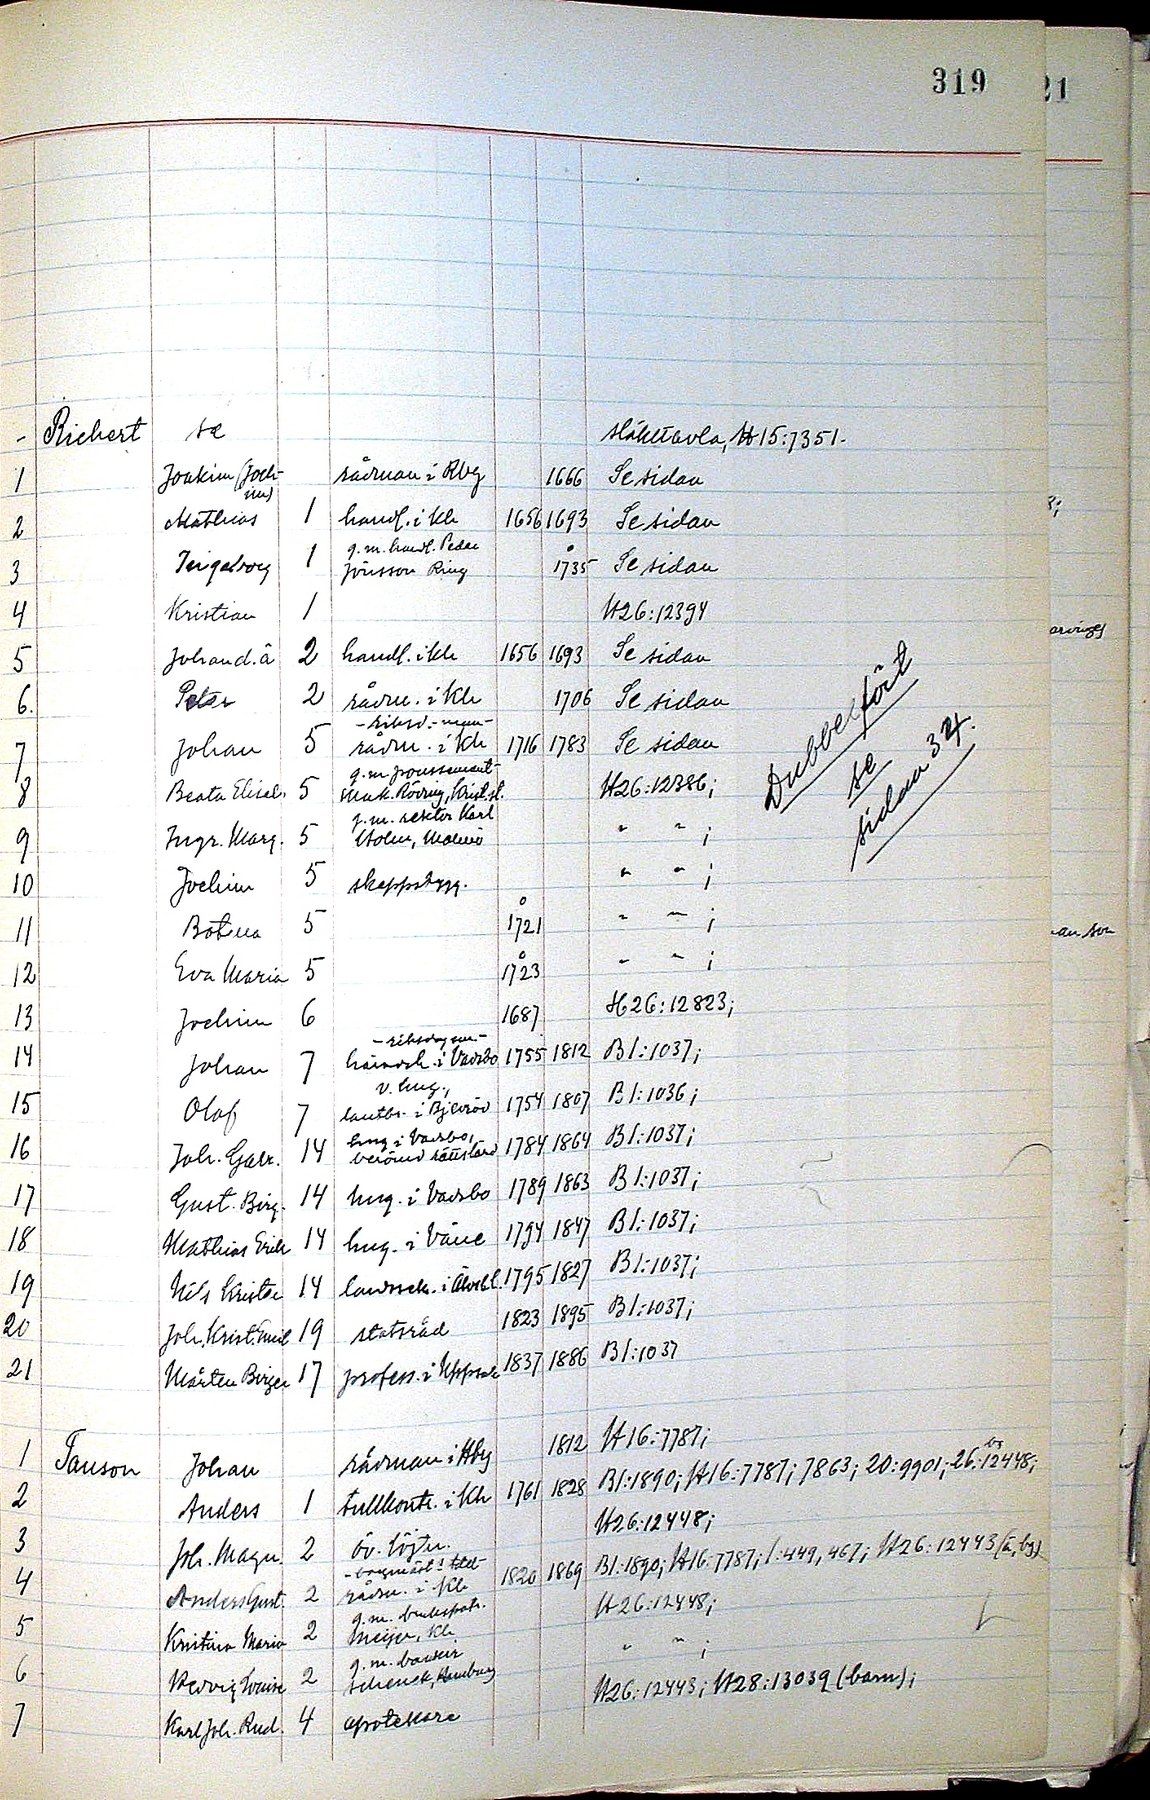 319
21
- Richert se släkttavla, H15:7351.
1 Joakim (Jochim) rådman i Rbg 1666 Se sidan
2 Mathias 1 handl. i Kh 1656 1693 Se sidan
3 Ingeborg 1 g.m. handl. Peder Jönsson Ring å 1735 Se sidan
4 Kristian 1 H26:12394
5 Johan d.ä 2 handl. i Kh 1656 1693 Se sidan
6. Peter 2 rådm. i Kh 1706 Se sidan
7 Johan 5 -riksd.-man- rådm. i Kh 1716 1783 Se sidan
8 Beata Elisab. 5 g.m. possement-mak. Rövrug, Krist.st. H26:12386;
9 Ingr. Marg. 5 g.m. rektor Karl Holm, Malmö " " ;
10 Jochim 5 skeppsbygg. " " ;
11 Botina 5 å 1721 " " ;
12 Eva Maria 5 å 1723 " " ;
13 Jochim 6 1687 H26:12823;
14 Johan 7 -riksdagsm.- häradsh. i Vadsbo 1755 1812 B1:1037;
15 Olof 7 v. häg., lantbr. i Bjerröd 1754 1807 B1:1036;
16 Joh. Gabr. 14 hmg i Vadsbo, 1784 1864 B1:1037;
17 Gust. Birg. 14 hmg. i Vadsbo 1789 1863 B1:1037;
18 Mathias Erik 14 hmg. i Väne 1794 1847 B1:1037;
19 Nils Krister 14 landssek. i Älvsb.l. 1795 1827 B1:1037;
20 Joh. Krist. Emil 19 statsråd 1823 1895 B1:1037;
21 Mårten Birger 17 profess. i Uppsala 1837 1886 B1:1037
Dubbelfört
se
sidan 324.
1 Tauson Johan rådman i Hbg 1812 H16:7787;
2 Anders 1 tullkontr. i Kh 1761 1828 B1:1890; H16:7787; 7863; 20:9901; 26:12448; bg
3 Joh. Magn. 2 öv. löjtn. H26:12448;
4 Anders Gust. 2 rådm. i Kh 1820 1869 B1:1890; H16:7787; 1:449, 467; H26:12443 (ä, bg)
5 Kristina Maria 2 g.m. brukspatr. Meijer, Kh H26:12448;
6 Hedvig Lovise 2 g.m. bankir Schenck, Hamburg " " ;
7 Karl Joh. Rud. 4 apotekare H26:12443; H28:13039 (barn);